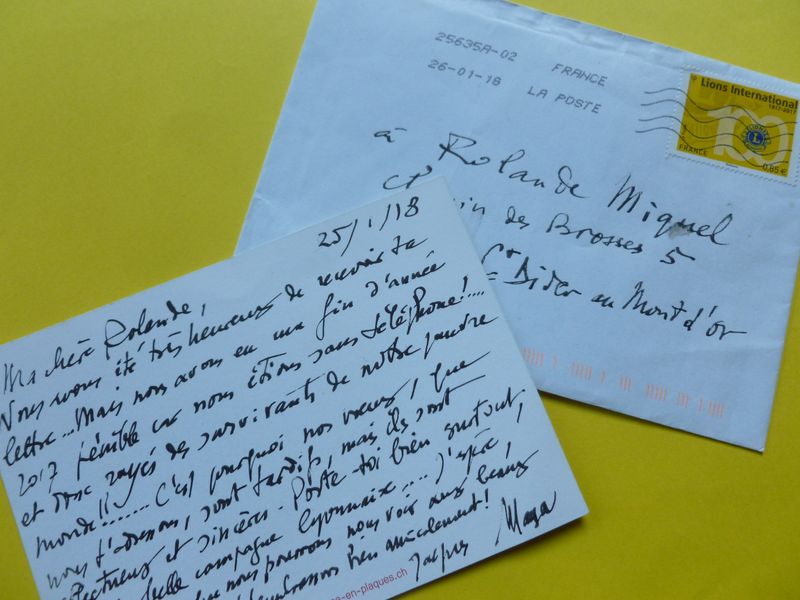 25635A-02 FRANCE
26-01-18 LA POSTE
Lions International
1917-2017
100
FRANCE
0,85 €
à Rolande Miquel
in des Brosses 5
St Didier au Mont d'or
25/1/18
Ma chère Rolande,
Nous avons été très heureux de recevoir ta
lettre... Mais nous avons eu une fin d'année
2017 pénible car nous étions sans téléphone!....
et donc rayés des survivants de notre pauvre
monde!!....... C'est pourquoi nos voeux, que
nous t'adressons, sont tardifs, mais ils sont
affectueux et sincères. Porte-toi bien surtout,
belle campagne lyonnaise.... J'espère,
que nous pourrons nous voir aux beaux
bien amicalement!
Jacques Maya
-en-plaques.ch